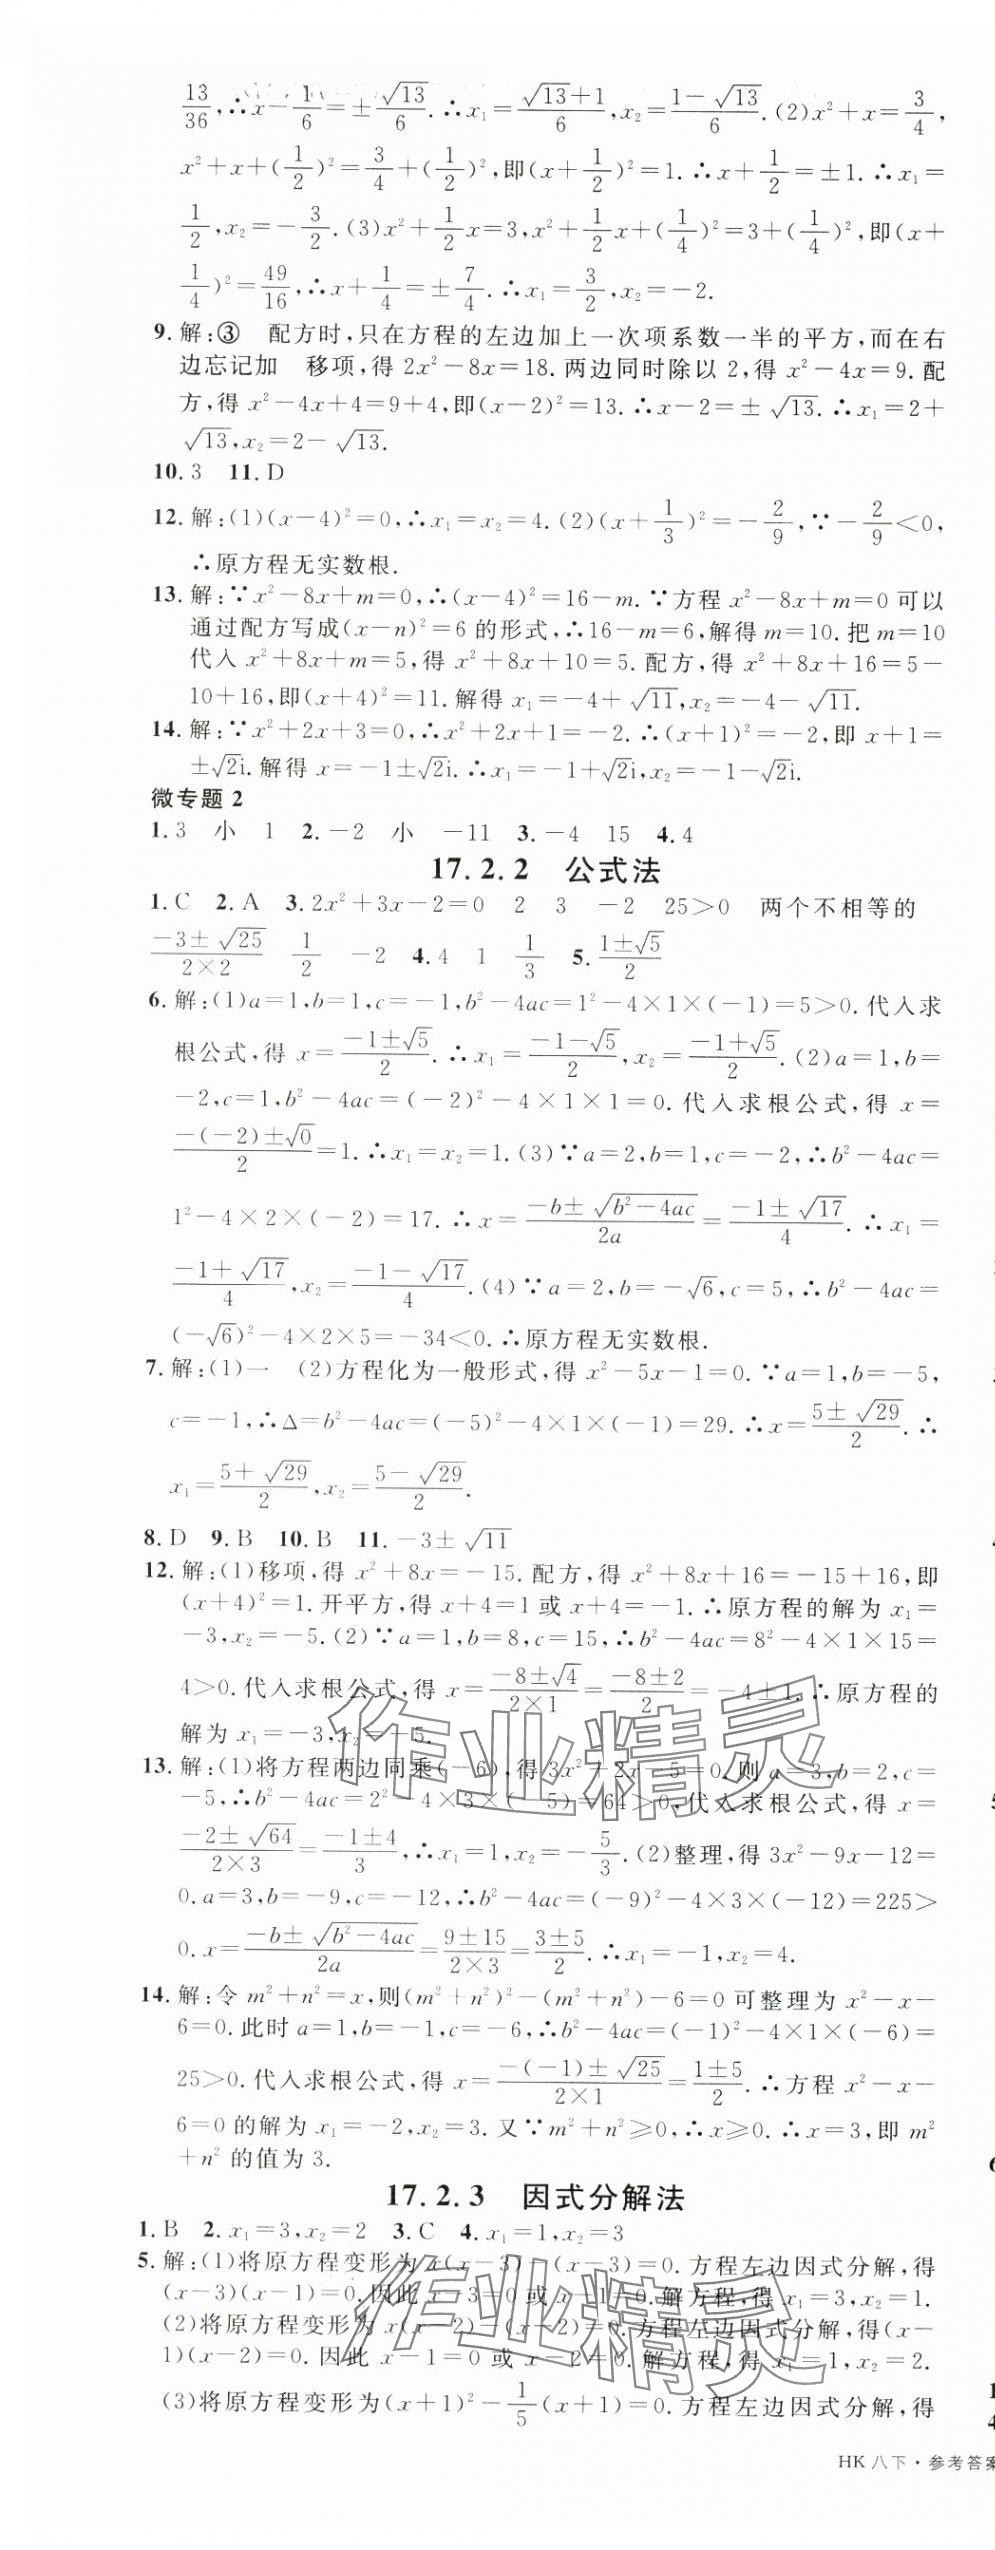 13/36,∴x−1/6=±√13/6.∴x₁=(√13+1)/6,x₂=(1−√13)/6.(2)x²+x=3/4,
x²+x+(1/2)²=3/4+(1/2)²,即(x+1/2)²=1.∴x+1/2=±1.∴x₁=
1/2,x₂=−3/2.(3)x²+1/2x=3,x²+1/2x+(1/4)²=3+(1/4)²,即(x+
1/4)²=49/16,∴x+1/4=±7/4.∴x₁=3/2,x₂=−2.
9.解:③ 配方时,只在方程的左边加上一次项系数一半的平方,而在右
边忘记加 移项,得 2x²−8x=18.两边同时除以 2,得 x²−4x=9.配
方,得 x²−4x+4=9+4,即(x−2)²=13.∴x−2=±√13.∴x₁=2+
√13,x₂=2−√13.
10.3 11.D
12.解:(1)(x−4)²=0,∴x₁=x₂=4.(2)(x+1/3)²=−2/9,∵−2/9<0,
∴原方程无实数根.
13.解:∵x²−8x+m=0,∴(x−4)²=16−m.∵方程 x²−8x+m=0 可以
通过配方写成(x−n)²=6 的形式,∴16−m=6,解得 m=10.把 m=10
代入 x²+8x+m=5,得 x²+8x+10=5.配方,得 x²+8x+16=5−
10+16,即(x+4)²=11.解得 x₁=−4+√11,x₂=−4−√11.
14.解:∵x²+2x+3=0,∴x²+2x+1=−2.∴(x+1)²=−2,即 x+1=
±√2i.解得 x=−1±√2i.∴x₁=−1+√2i,x₂=−1−√2i.
微专题 2
1.3 小 1 2.−2 小 −11 3.−4 15 4.4
17.2.2 公式法
1.C 2.A 3.2x²+3x−2=0 2 3 −2 25>0 两个不相等的
(−3±√25)/(2×2) 1/2 −2 4.4 1 1/3 5.(1±√5)/2
6.解:(1)a=1,b=1,c=−1,b²−4ac=1²−4×1×(−1)=5>0.代入求
根公式,得 x=(−1±√5)/2.∴x₁=(−1−√5)/2,x₂=(−1+√5)/2.(2)a=1,b=
−2,c=1,b²−4ac=(−2)²−4×1×1=0.代入求根公式,得 x=
(−(−2)±√0)/2=1.∴x₁=x₂=1.(3)∵a=2,b=1,c=−2,∴b²−4ac=
1²−4×2×(−2)=17.∴x=(−b±√(b²−4ac))/2a=(−1±√17)/4.∴x₁=
(−1+√17)/4,x₂=(−1−√17)/4.(4)∵a=2,b=−√6,c=5,∴b²−4ac=
(−√6)²−4×2×5=−34<0.∴原方程无实数根.
7.解:(1)一 (2)方程化为一般形式,得 x²−5x−1=0.∵a=1,b=−5,
c=−1,∴Δ=b²−4ac=(−5)²−4×1×(−1)=29.∴x=(5±√29)/2.∴
x₁=(5+√29)/2,x₂=(5−√29)/2.
8.D 9.B 10.B 11.−3±√11
12.解:(1)移项,得 x²+8x=−15.配方,得 x²+8x+16=−15+16,即
(x+4)²=1.开平方,得 x+4=1 或 x+4=−1.∴原方程的解为 x₁=
−3,x₂=−5.(2)∵a=1,b=8,c=15,∴b²−4ac=8²−4×1×15=
4>0.代入求根公式,得 x=(−8±√4)/(2×1)=(−8±2)/2=−4±1.∴原方程的
解为 x₁=−3,x₂=−5.
13.解:(1)将方程两边同乘(−6),得 3x²+2x−5=0.则 a=3,b=2,c=
−5,∴b²−4ac=2²−4×3×(−5)=64>0,代入求根公式,得 x=
(−2±√64)/(2×3)=(−1±4)/3,∴x₁=1,x₂=−5/3.(2)整理,得 3x²−9x−12=
0.a=3,b=−9,c=−12,∴b²−4ac=(−9)²−4×3×(−12)=225>
0.x=(−b±√(b²−4ac))/2a=(9±15)/(2×3)=(3±5)/2.∴x₁=−1,x₂=4.
14.解:令 m²+n²=x,则(m²+n²)²−(m²+n²)−6=0 可整理为 x²−x−
6=0.此时 a=1,b=−1,c=−6,∴b²−4ac=(−1)²−4×1×(−6)=
25>0.代入求根公式,得 x=(−(−1)±√25)/(2×1)=(1±5)/2.∴方程 x²−x−
6=0 的解为 x₁=−2,x₂=3.又∵m²+n²≥0,∴x≥0.∴x=3,即 m²
+n² 的值为 3.
17.2.3 因式分解法
1.B 2.x₁=3,x₂=2 3.C 4.x₁=1,x₂=3
5.解:(1)将原方程变形为 x(x−3)−(x−3)=0.方程左边因式分解,得
(x−3)(x−1)=0.因此 x−3=0 或 x−1=0.解方程,得 x₁=3,x₂=1.
(2)将原方程变形为 x(x−2)−(x−2)=0.方程左边因式分解,得(x−
1)(x−2)=0.因此 x−1=0 或 x−2=0.解方程,得 x₁=1,x₂=2.
(3)将原方程变形为(x+1)²−1/5(x+1)=0.方程左边因式分解,得
HK 八下·参考答案
作业精灵
作业精灵